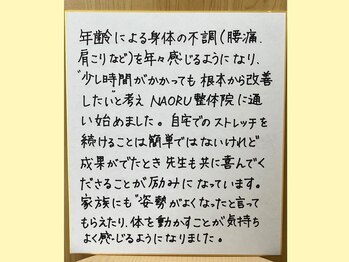 年齢による身体の不調(腰痛、
肩こりなど)を年々感じるようになり、
"少し時間がかかっても 根本から改善
したい"と考え NAORU整体院に通
い始めました。自宅での ストレッチを
続けることは簡単ではないけれど
成果がでたとき 先生も共に喜んでく
ださることが 励みに なっています。
家族にも "姿勢がよくなったと言って
もらえたり、体を動かすことが 気持ち
よく感じるようになりました。